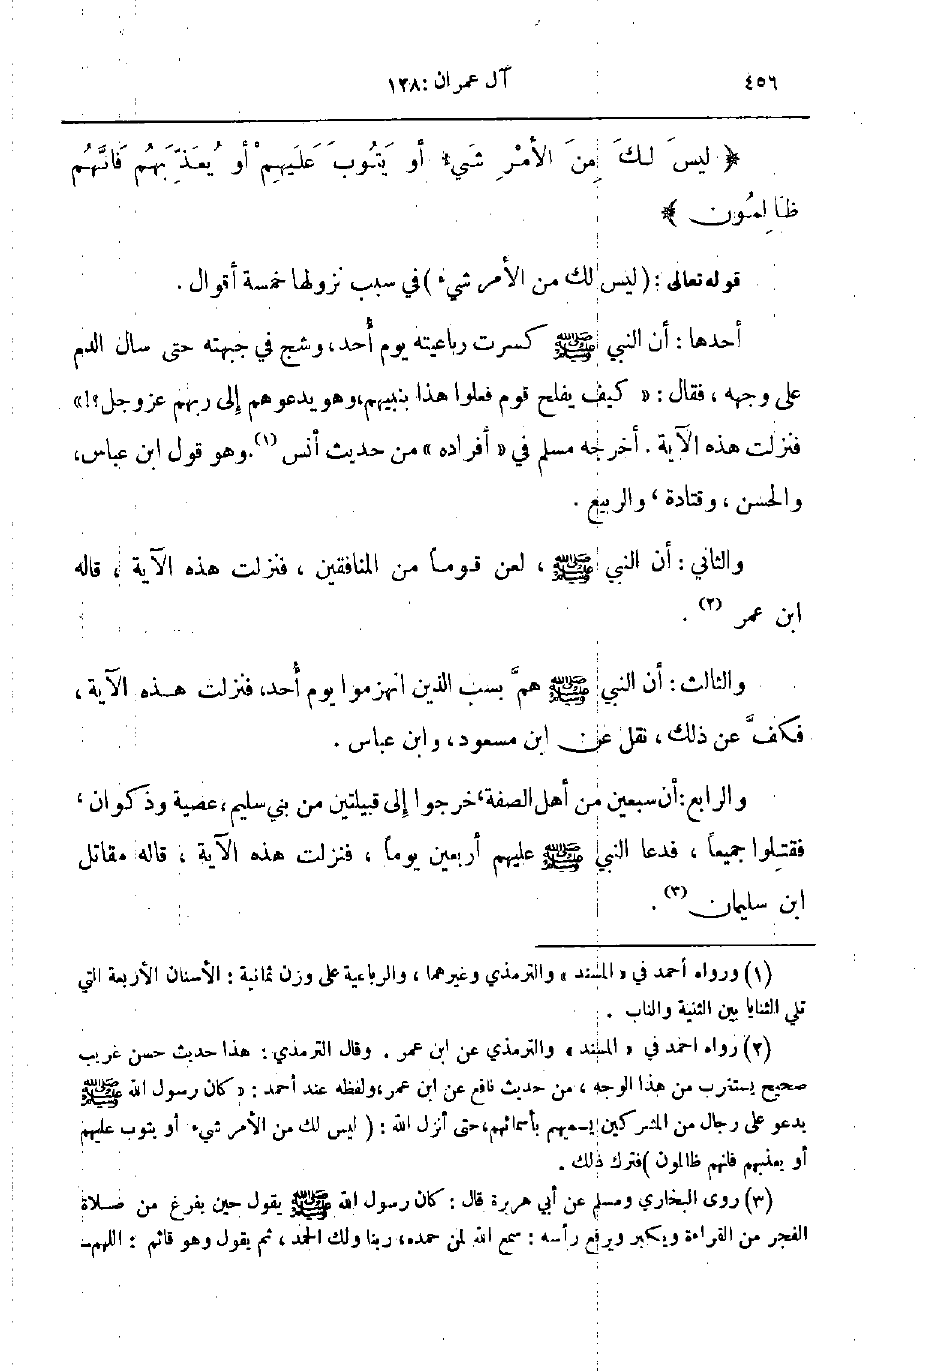 ٤٥٦
آل عمران : ١٢٨
﴿ لَيسَ لَكَ مِنَ الأَمْرِ شَيءٌ أَو يَتُوبَ عَلَيهِمْ أَو يُعَذِّبَهُم فَانَّهُم
ظَالِمُون ﴾
قوله تعالى : ( ليس لك من الأمر شيء ) في سبب نزولها خمسة أقوال .
أحدها : أن النبي ﷺ كسرت رباعيته يوم أُحد ، وشج في جبهته حتى سال الدم
على وجهه ، فقال : « كيف يفلح قوم فعلوا هذا بنبيهم ، وهو يدعوهم إلى ربهم عز وجل ؟! »
فنزلت هذه الآية . أخرجه مسلم في « أفراده » من حديث أنس (١) . وهو قول ابن عباس ،
والحسن ، وقتادة ، والربيع .
والثاني : أن النبي ﷺ ، لعن قوماً من المنافقين ، فنزلت هذه الآية ، قاله
ابن عمر (٢) .
والثالث : أن النبي ﷺ همَّ بسب الذين انهزموا يوم أُحد ، فنزلت هذه الآية ،
فكفَّ عن ذلك ، نقل عن ابن مسعود ، وابن عباس .
والرابع : أن سبعين من أهل الصفة ، خرجوا إلى قبيلتين من بني سليم ، عصية وذكوان ،
فقتلوا جميعاً ، فدعا النبي ﷺ عليهم أربعين يوماً ، فنزلت هذه الآية ، قاله مقاتل
ابن سليمان (٣) .
(١) ورواه أحمد في « المسند » والترمذي وغيرهما ، والرباعية على وزن ثمانية : الأسنان الأربعة التي
تلي الثنايا بين الثنية والناب .
(٢) رواه احمد في « المسند » والترمذي عن ابن عمر . وقال الترمذي : هذا حديث حسن غريب
صحيح يستغرب من هذا الوجه ، من حديث نافع عن ابن عمر ، ولفظه عند أحمد : « كان رسول الله ﷺ
يدعو على رجال من المشركين يسميهم بأسمائهم ، حتى أنزل الله : ( ليس لك من الأمر شيء أو يتوب عليهم
أو يعذبهم فانهم ظالمون ) فترك ذلك .
(٣) روى البخاري ومسلم عن أبي هريرة قال : كان رسول الله ﷺ يقول حين يفرغ من صلاة
الفجر من القراءة ويكبر ويرفع رأسه : سمع الله لمن حمده ، ربنا ولك الحمد ، ثم يقول وهو قائم : اللهم ـ